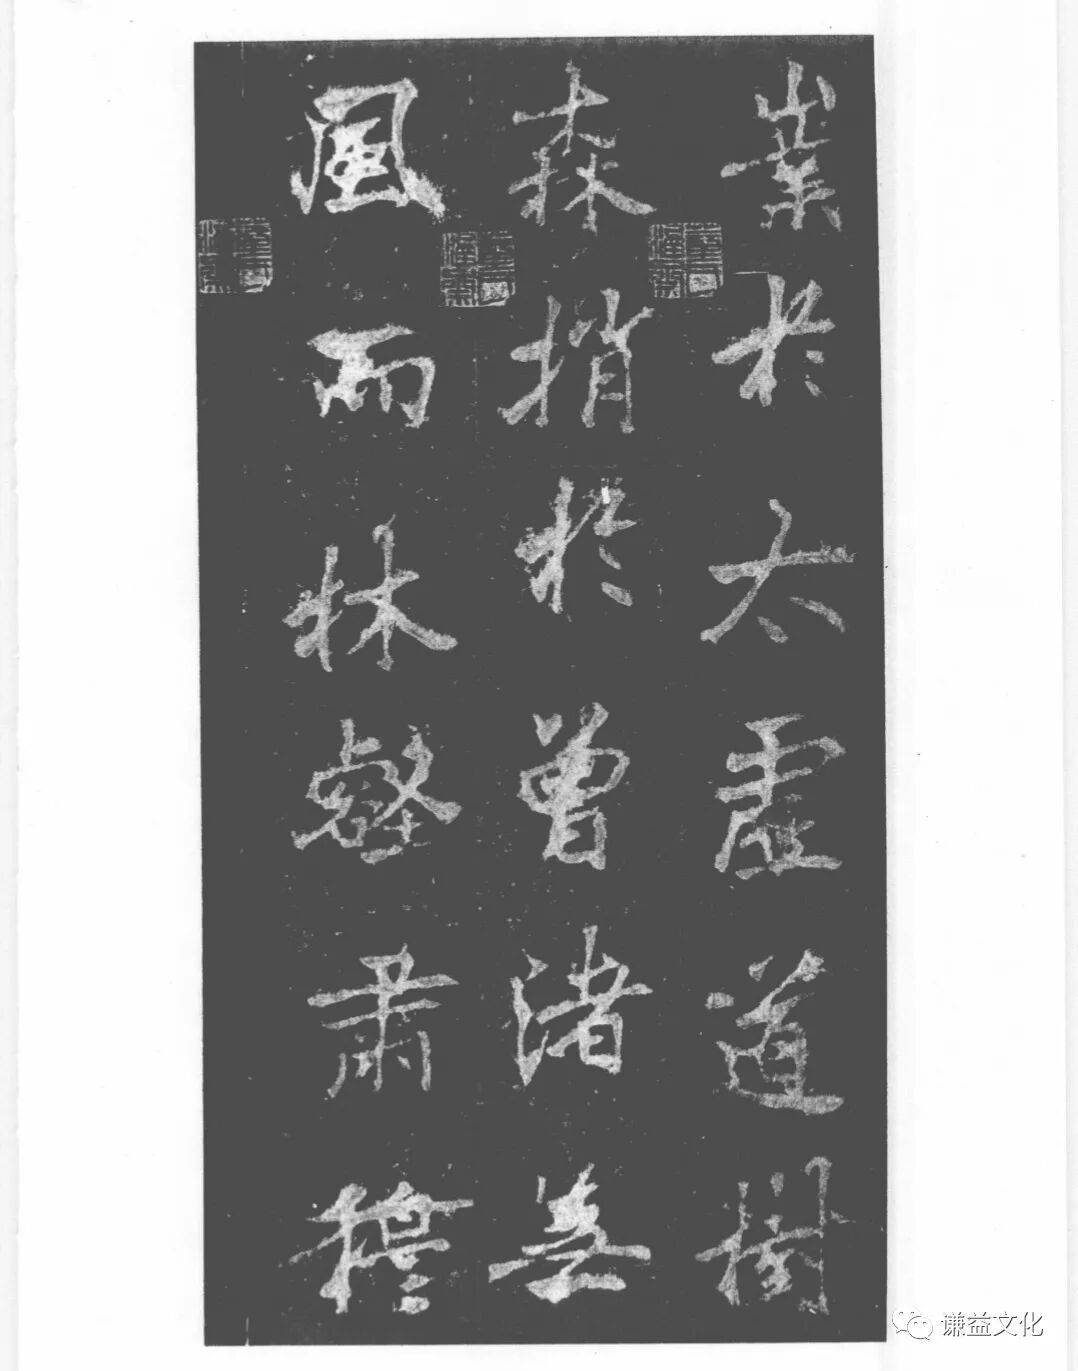 業於太虛道樹
森捎於曾渚無
風而林壑肅穆
谦益文化